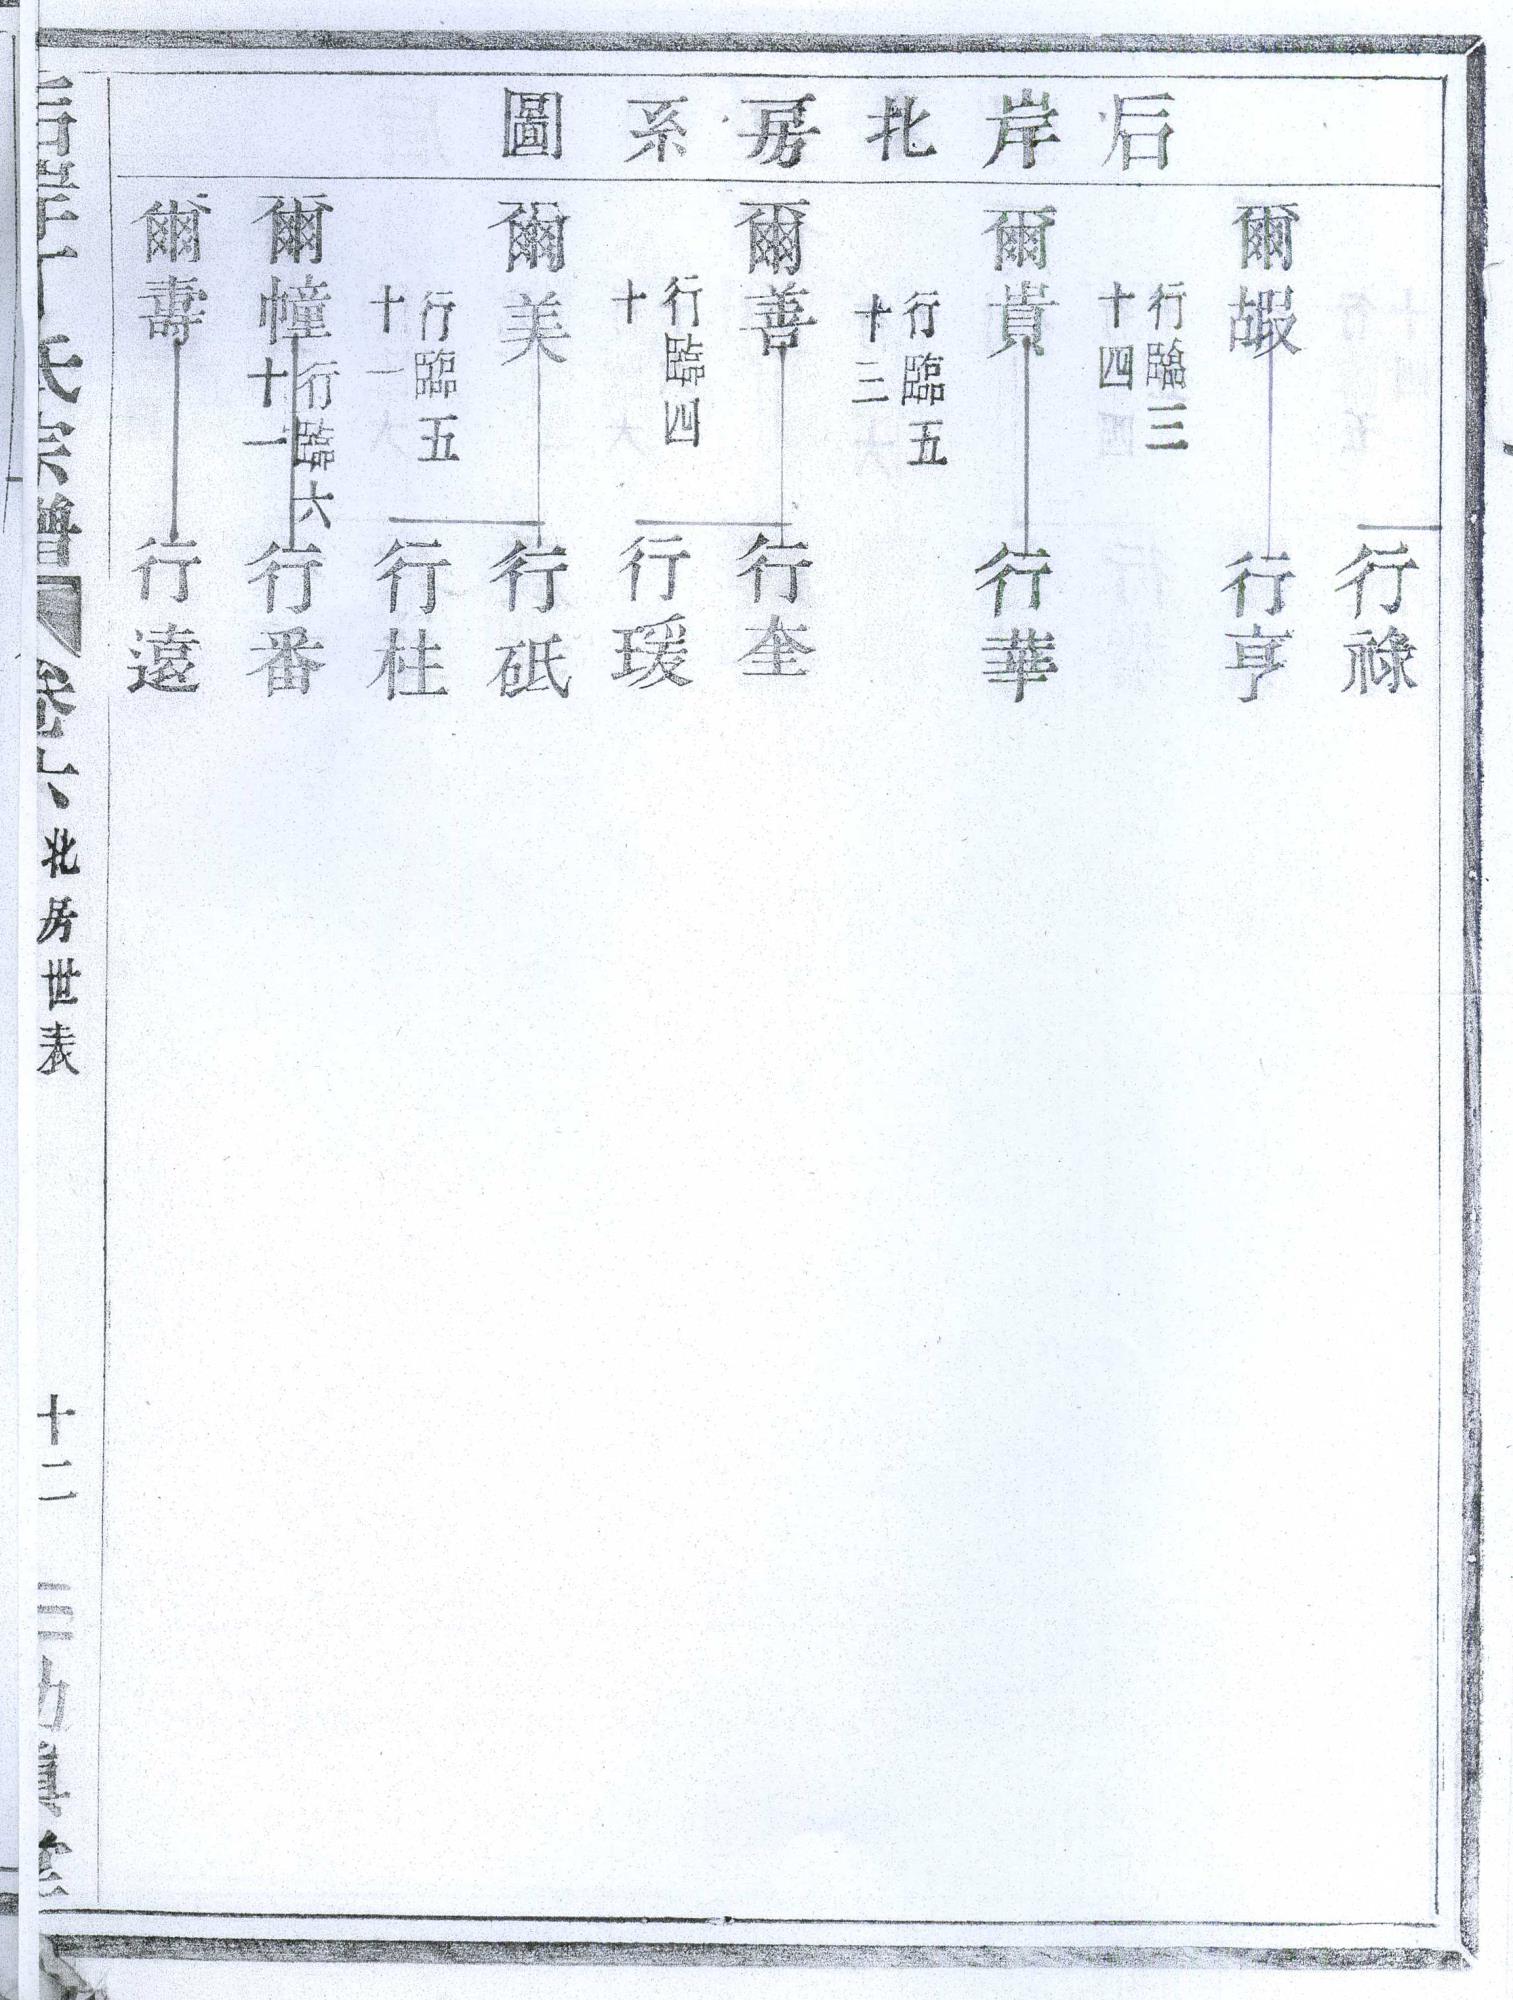 后岸北房系圖
行祿
爾嘏
行亨
行臨三
十四
爾貴
行華
行臨五
十三
爾善
行奎
行臨四
十
行瑗
爾美
行砥
行臨五
十一
行桂
爾幢
行臨六
十一
行番
爾壽
行遠
氏宗譜
卷六
北房世表
十二